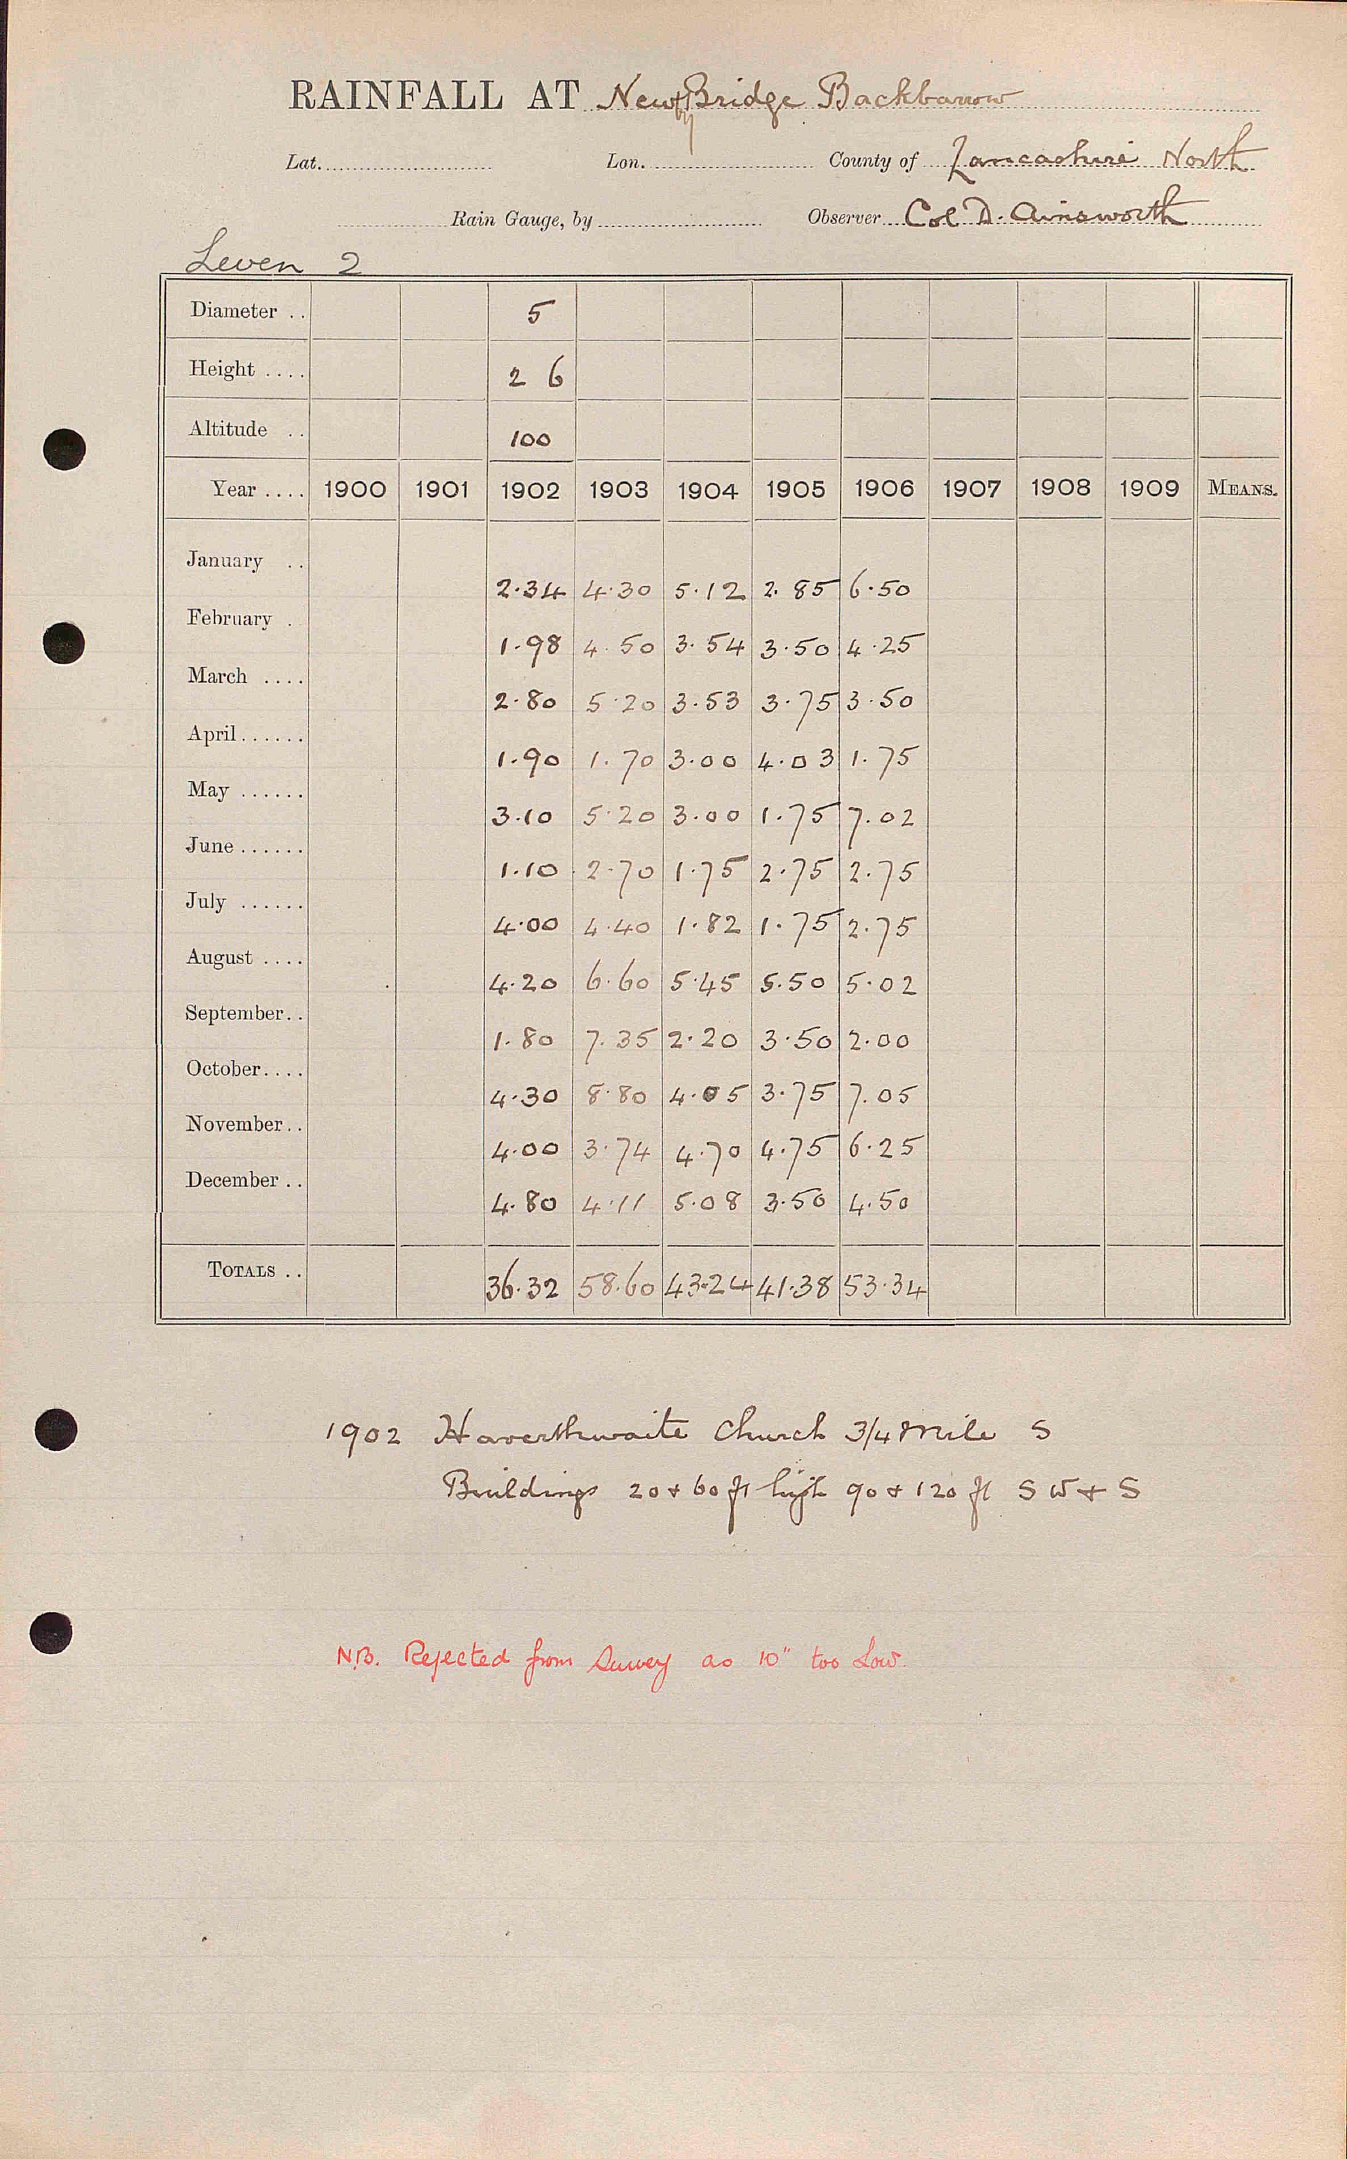 RAINFALL AT Newby Bridge Backbarrow
Lat. Lon. County of Lancashire North
Rain Gauge, by Observer Col D. Ainsworth
Leven 2
Diameter .. 5
Height .... 2 6
Altitude .. 100
Year .... 1900 1901 1902 1903 1904 1905 1906 1907 1908 1909 MEANS.
January .. 2.34 4.30 5.12 2.85 6.50
February . 1.98 4.50 3.54 3.50 4.25
March .... 2.80 5.20 3.53 3.75 3.50
April ...... 1.90 1.70 3.00 4.03 1.75
May ...... 3.10 5.20 3.00 1.75 7.02
June ...... 1.10 2.70 1.75 2.75 2.75
July ...... 4.00 4.40 1.82 1.75 2.75
August .... 4.20 6.60 5.45 5.50 5.02
September.. 1.80 7.35 2.20 3.50 2.00
October.... 4.30 8.80 4.05 3.75 7.05
November.. 4.00 3.74 4.70 4.75 6.25
December .. 4.80 4.11 5.08 3.50 4.50
TOTALS .. 36.32 58.60 43.24 41.38 53.34
1902 Haverthwaite Church 3/4 mile S
Buildings 20 & 60 ft high 90 & 120 ft SW & S
N.B. Rejected from Survey as 10" too low.